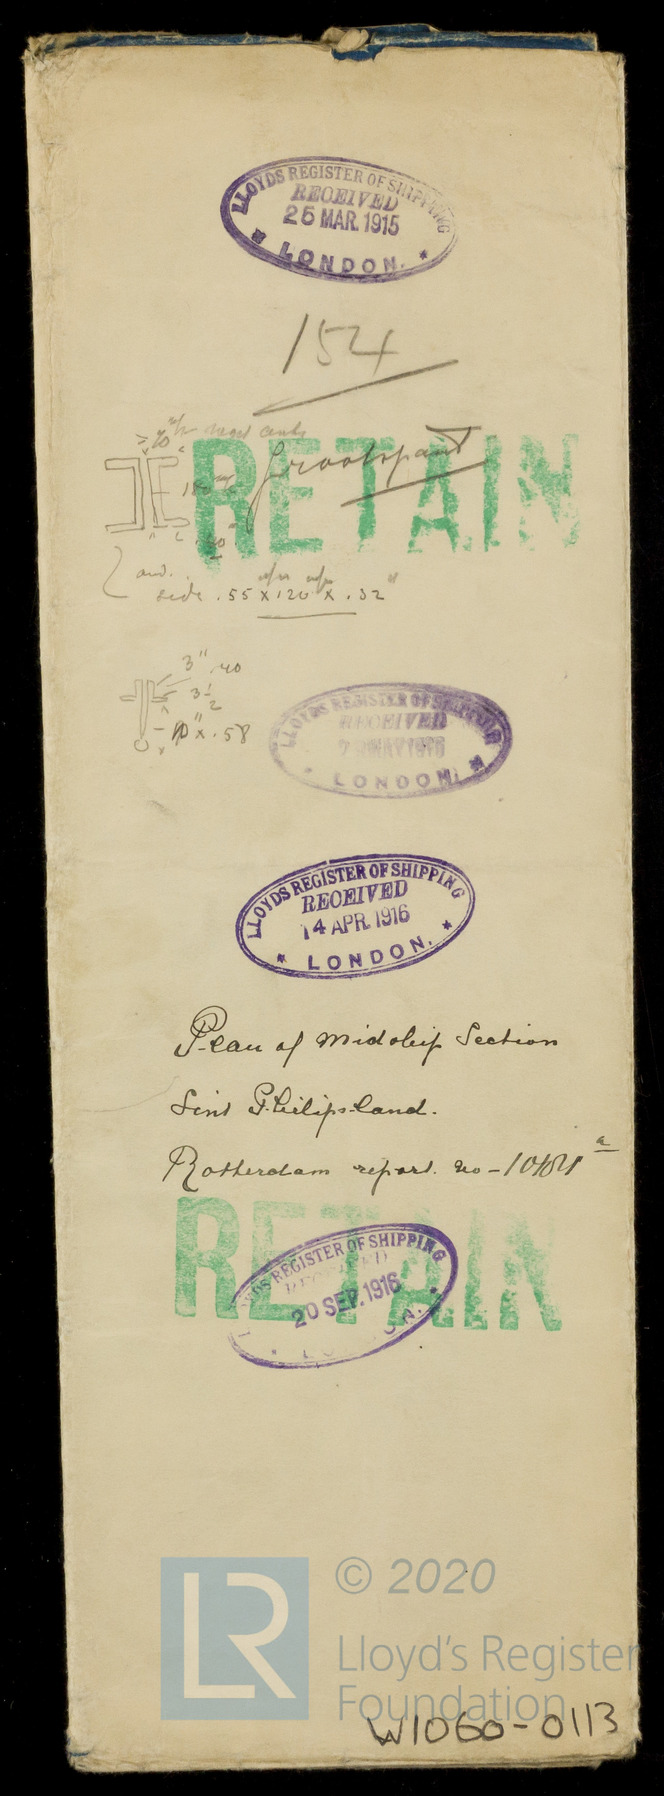 LLOYDS REGISTER OF SHIPPING
RECEIVED
25 MAR. 1915
LONDON.
154
RETAIN
side .55 x 120 x .32"
3" .40
3 1/2
10" x .58
LLOYDS REGISTER OF SHIPPING
RECEIVED
LONDON
LLOYDS REGISTER OF SHIPPING
RECEIVED
14 APR. 1916
LONDON.
Plan of Midship Section
Sint Philipsland.
Rotterdam report. no-
RETAIN
LLOYDS REGISTER OF SHIPPING
RECEIVED
20 SEP. 1916
LR
© 2020
Lloyd's Register
Foundation
W1060-0113